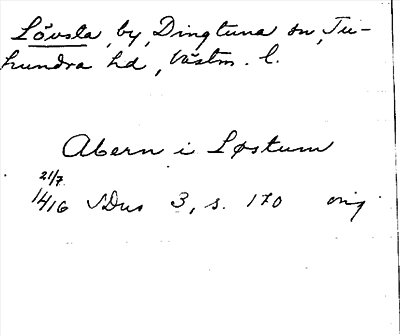 Lövsta, by, Dingtuna sn, Tu-
hundra hd, Västm. l.
Abern i Løstum
21/7
1416 SDns 3, s. 170 orig